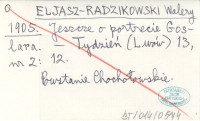 ELJASZ-RADZIKOWSKI Walery
1905. Jeszcze o portrecie Gos-
lara. — Tydzień (Lwów) 13,
nr 2: 12.
Powstanie Chochołowskie.